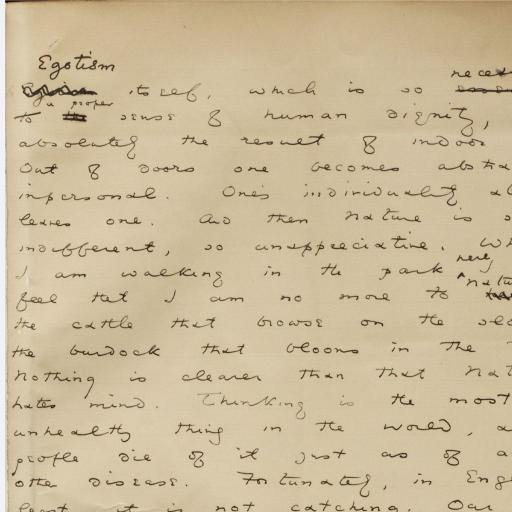 Egotism
itself, which is so neces
to a proper sense of human dignity,
absolutely the result of indoor
Out of doors one becomes abstra
impersonal. One's individuality
leaves one. And then Nature is
indifferent, so unappreciative.
I am walking in the park here,
feel that I am no more to Natu
the cattle that browse on the slo
the burdock that blooms in the
Nothing is clearer than that Nat
hates mind. Thinking is the most
unhealthy thing in the world, a
people die of it just as of a
other disease. Fortunately, in Eng
least it is not catching. Our